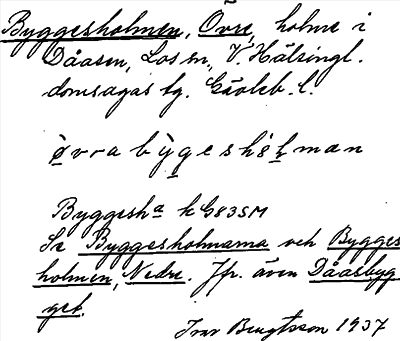 Byggesholmen, Övre, holme i
Dåasen, Los sn, V. Hälsingl.
domsagas tg. Gävleb. l.
Byggesha k G835M
Se Byggesholmarna och Bygges
holmen, Nedre. Jfr. även Dåasbyg
get.
Ivar Bengtsson 1937